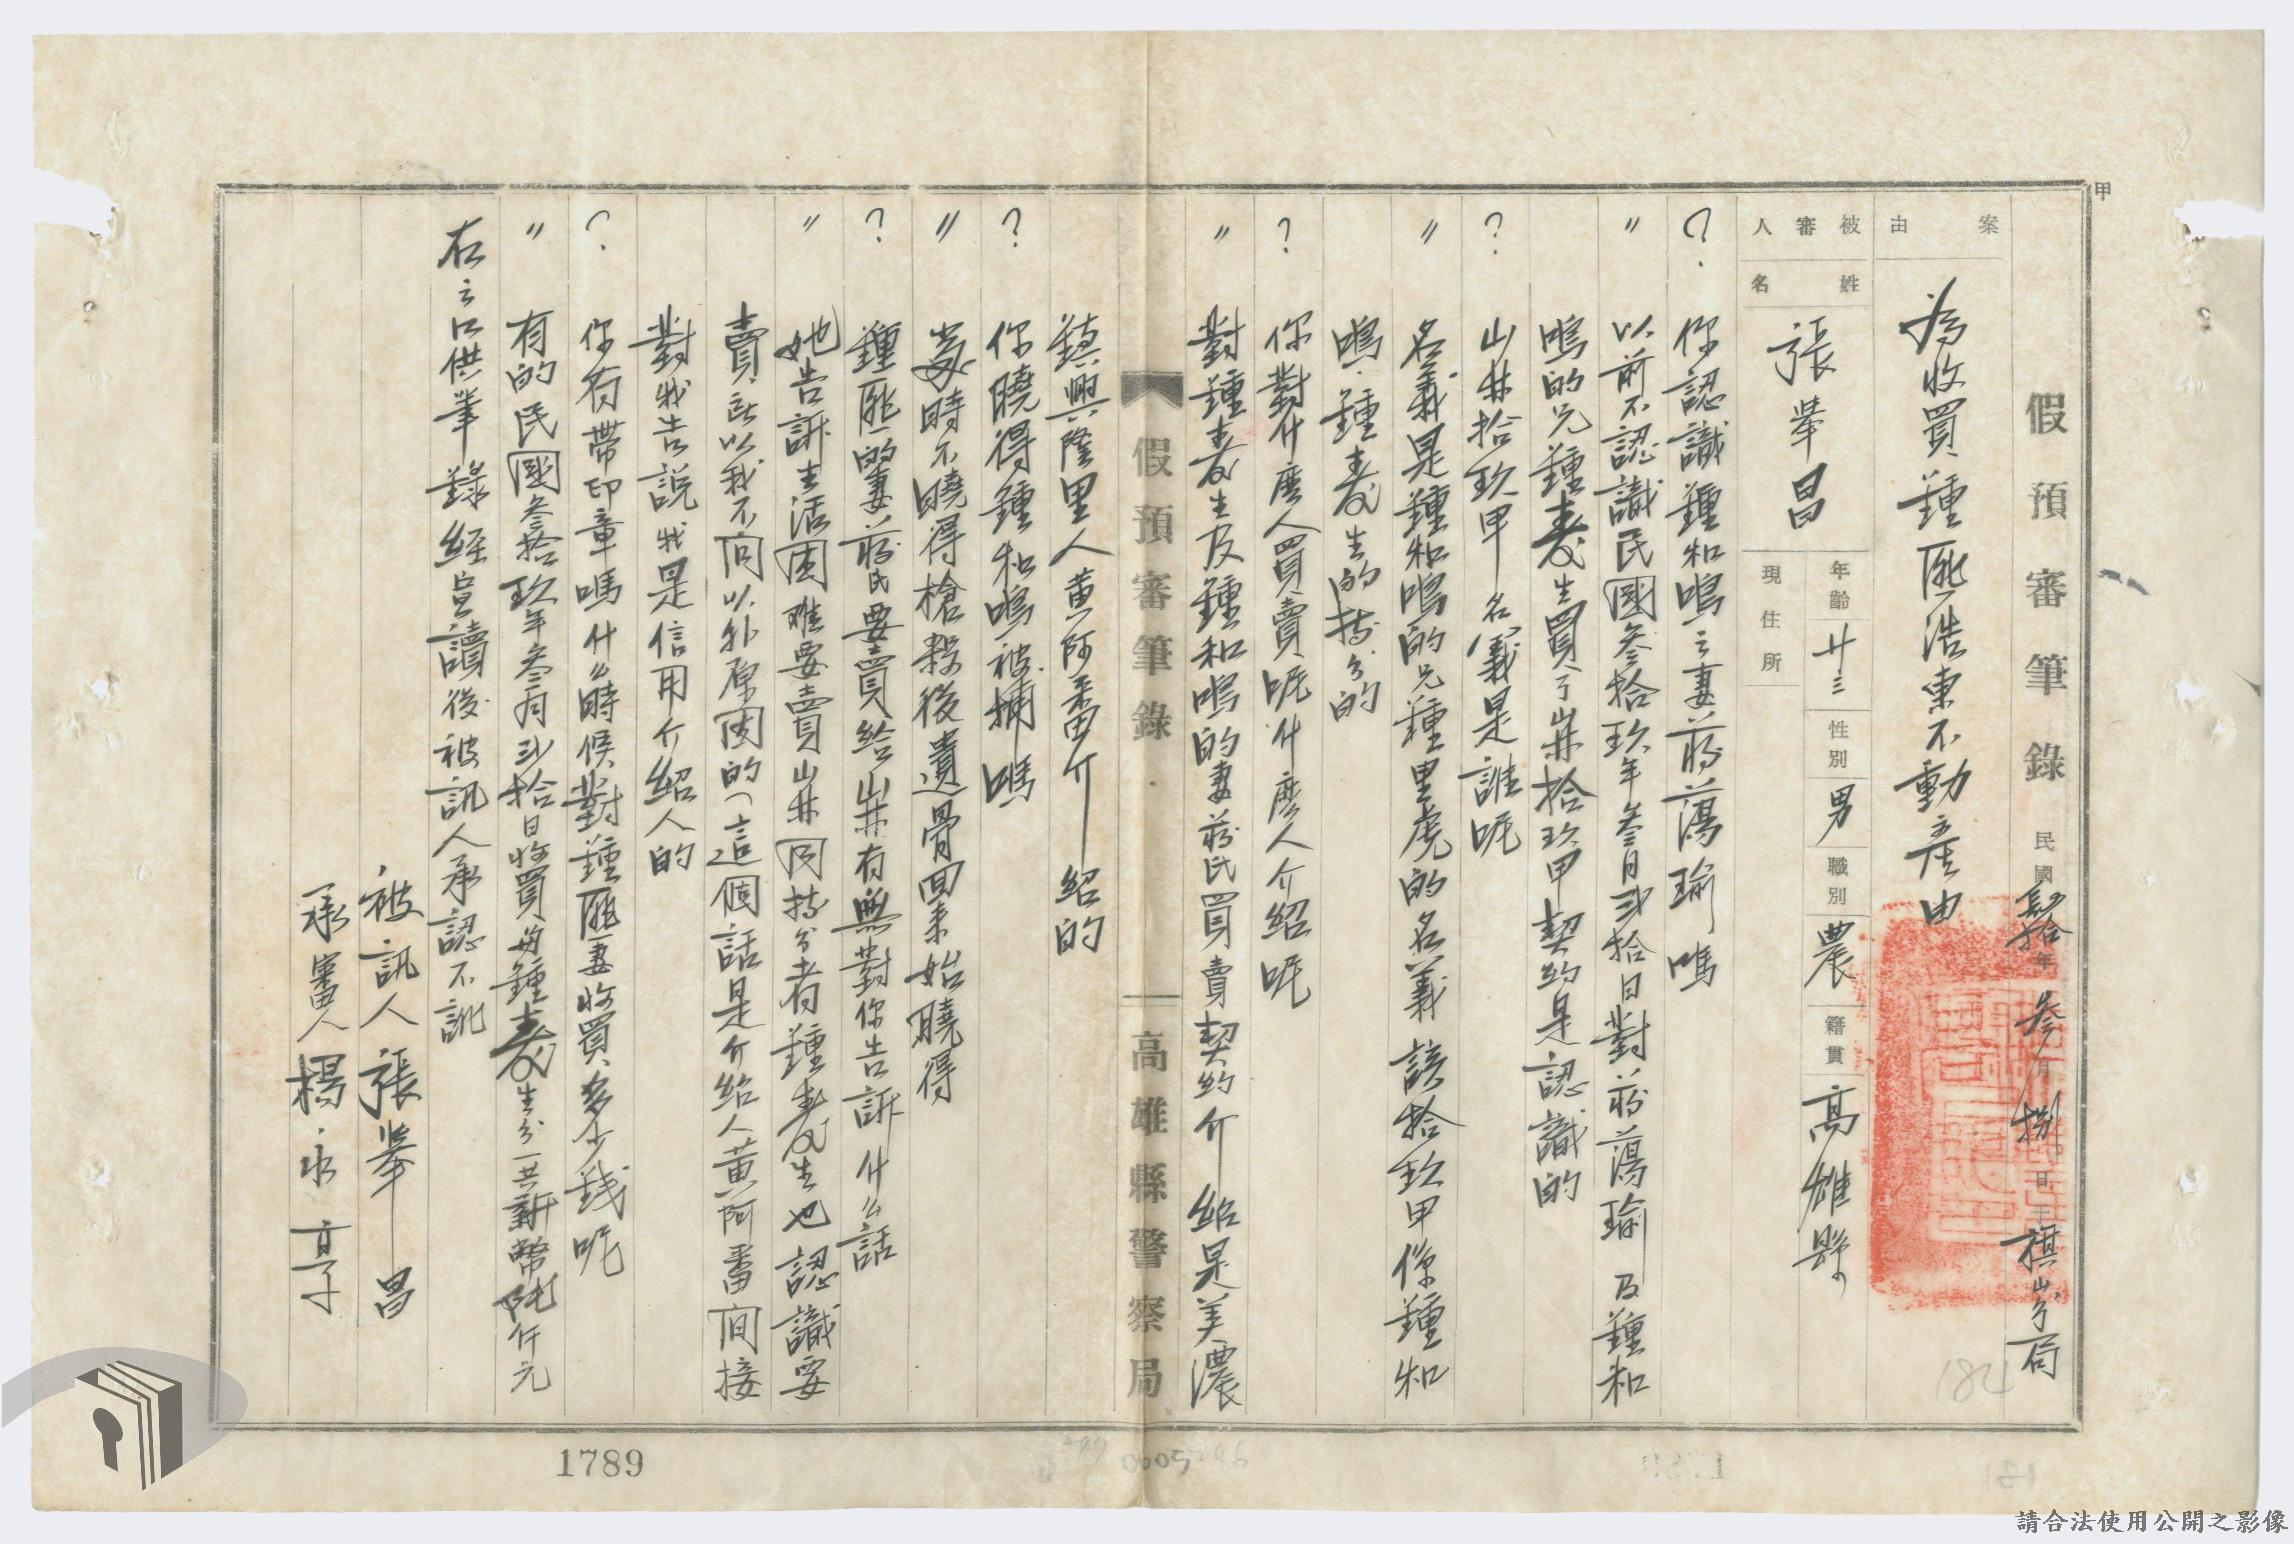 甲
假預審筆錄 民國肆拾年叁月捌日于旗山分局
案由 為收買鍾匪浩東不動產由
被審人 姓名 張舉昌 年齡 廿三 性別 男 職別 農 籍貫 高雄縣
現住所
? 你認識鍾和鳴之妻蔣蕩瑜嗎
〃 以前不認識民國叁拾玖年叁月弍拾日對蔣蕩瑜及鍾和
鳴的兄鍾 生買了山林拾玖甲契約是認識的
? 山林拾玖甲名義是誰呢
〃 名義是鍾和鳴的兄鍾里虎的名義該拾玖甲係鍾和
鳴·鍾 生的持分的
? 你對什麼人買賣呢什麼人介紹呢
〃 對鍾 生及鍾和鳴的妻蔣氏買賣契約介紹是美濃
假預審筆錄· 高雄縣警察局
鎮興隆里人黃阿番介紹的
? 你曉得鍾和鳴被捕嗎
〃 當時不曉得槍殺後遺骨回來始曉得
? 鍾匪的妻蔣氏要賣給山林有無對你告訴什么話
〃 她告訴生活困难要賣山林同持分者鍾 生也認識要
賣所以我不问以外原因的(這個話是介紹人黃阿番间接
對我告說我是信用介紹人的
? 你有带印章嗎什么時候對鍾匪妻收買多少錢呢
〃 有的民國叁拾玖年叁月弍拾日收買與鍾 生分一共新幣 仟元
右之口供筆錄經宣讀後被訊人承認不訛
被訊人張舉昌
承審人楊永亨
184
1789
請合法使用公開之影像